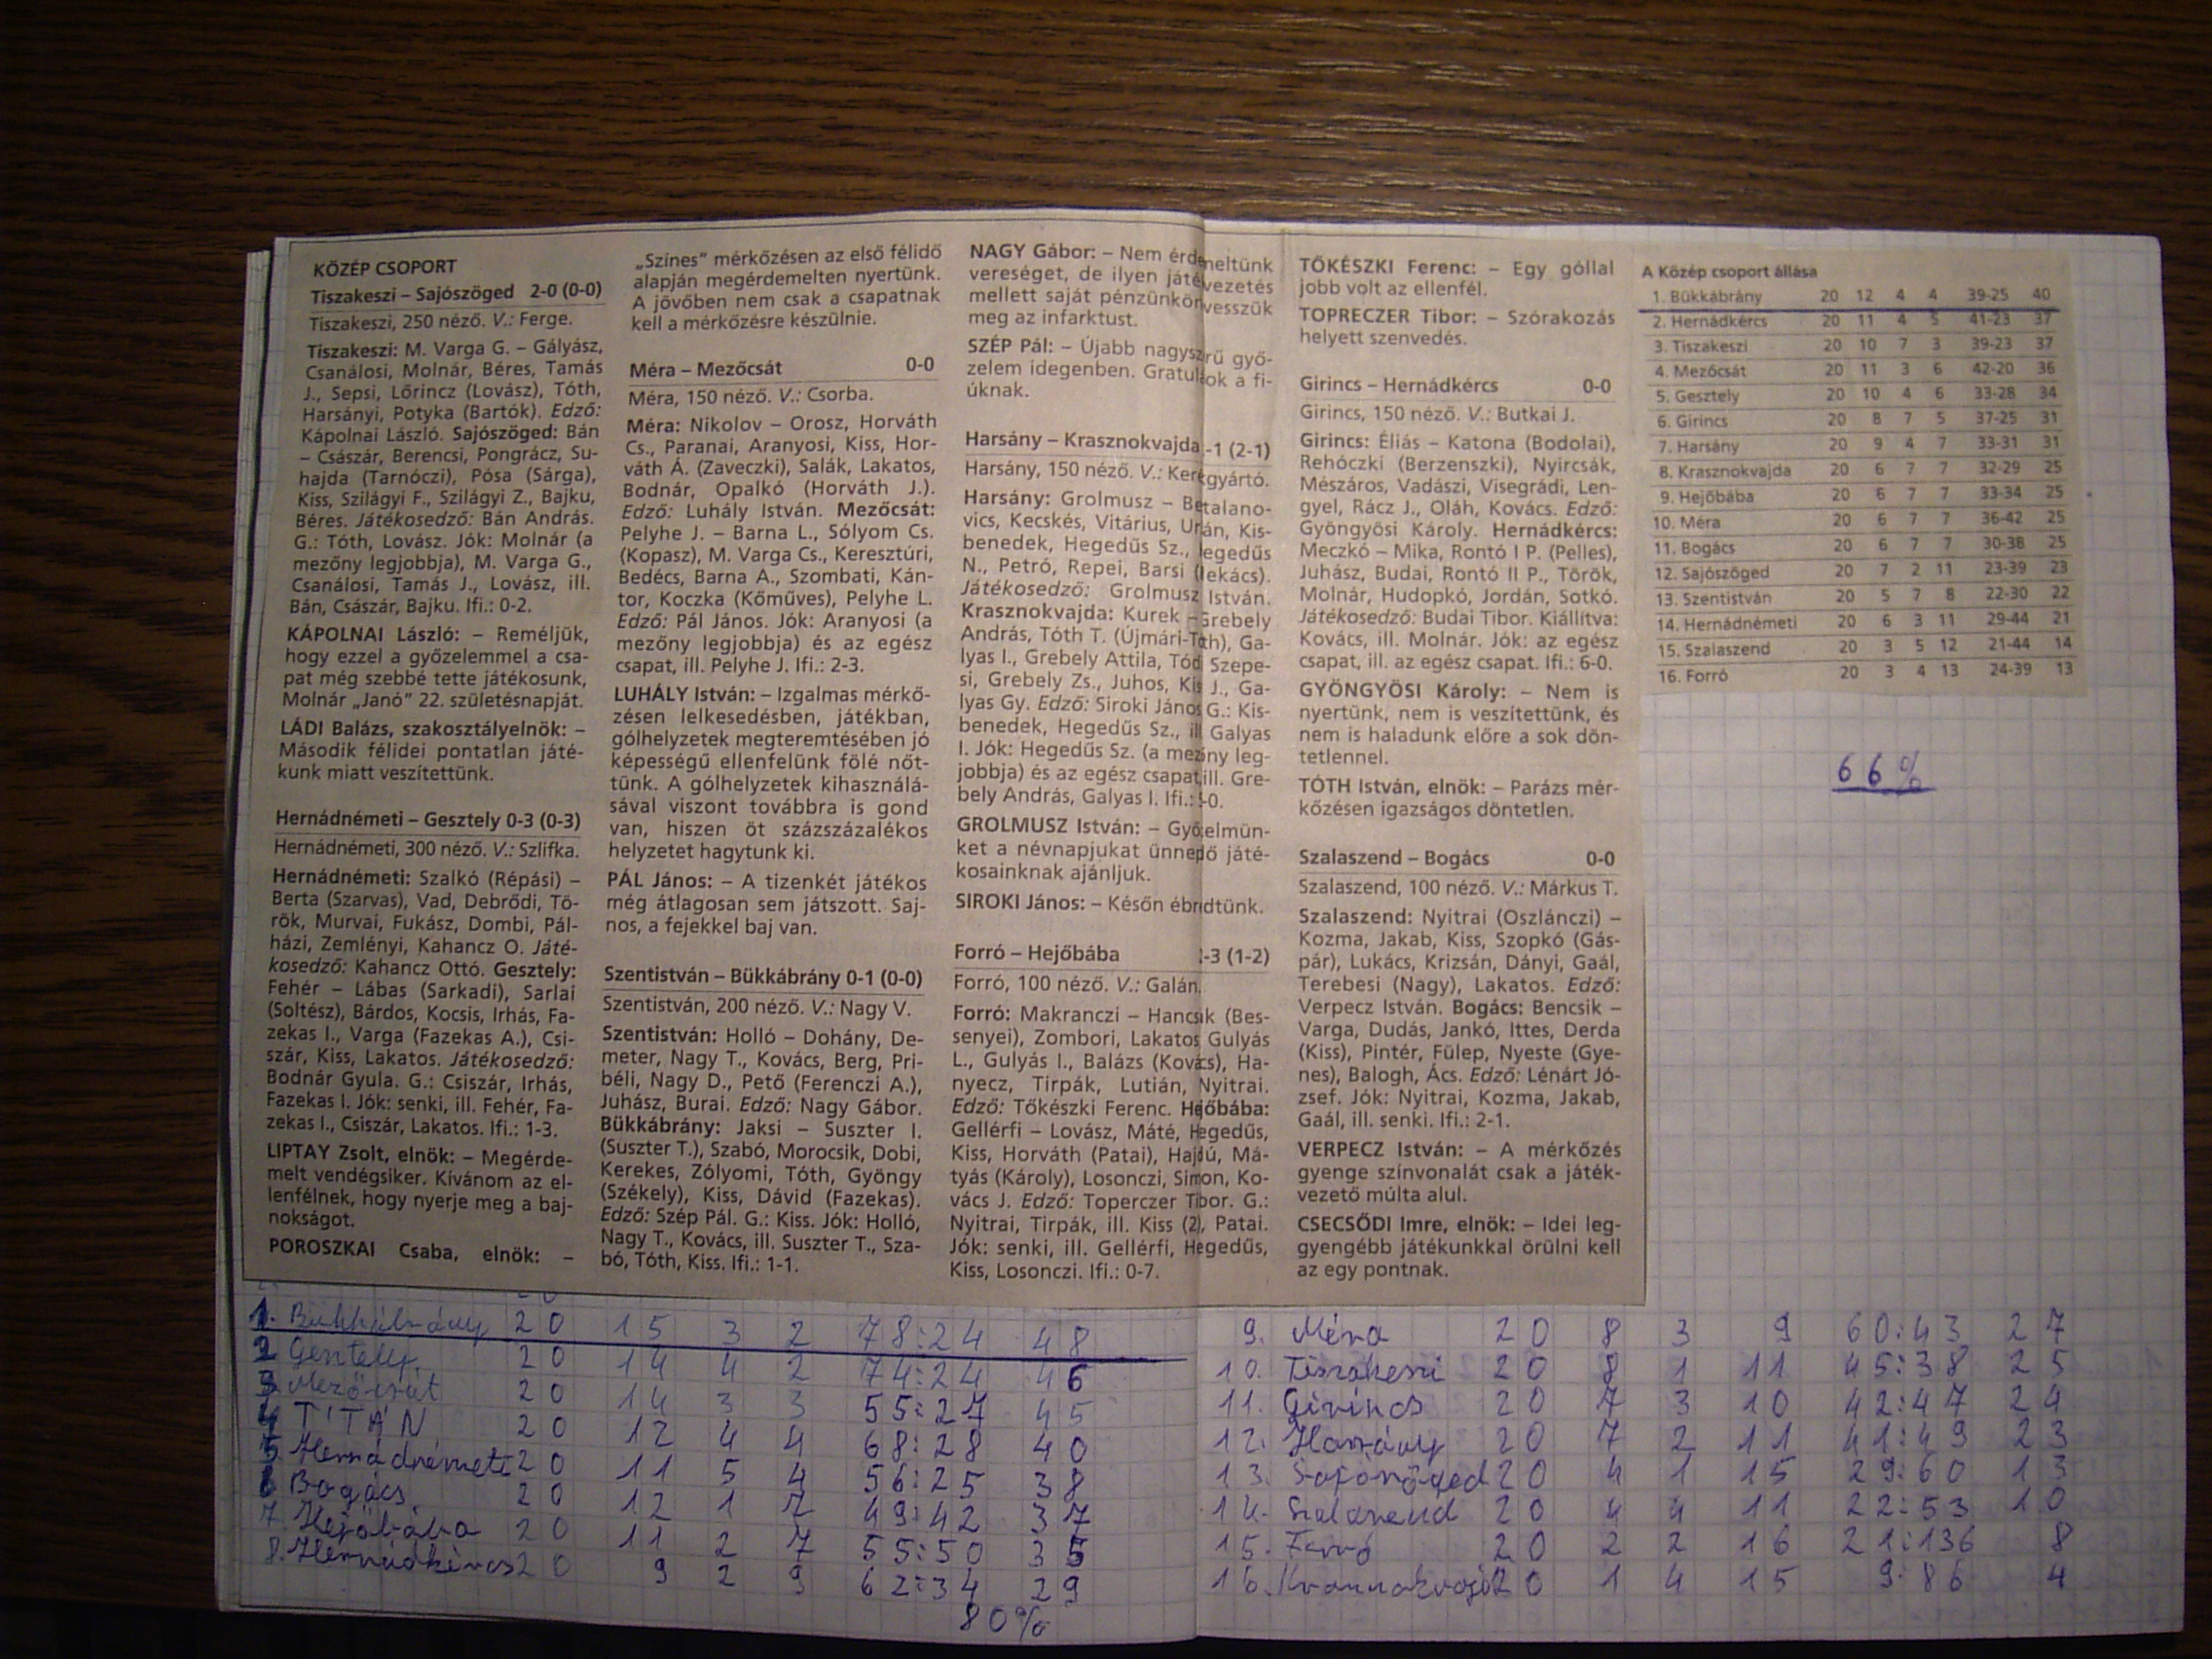 KÖZÉP CSOPORT
Tiszakeszi – Sajószöged 2-0 (0-0)
Tiszakeszi, 250 néző. V.: Ferge.
Tiszakeszi: M. Varga G. – Gályász,
Csanálosi, Molnár, Béres, Tamás
J., Sepsi, Lőrincz (Lovász), Tóth,
Harsányi, Potyka (Bartók). Edző:
Kápolnai László. Sajószöged: Bán
– Császár, Berencsi, Pongrácz, Su-
hajda (Tarnóczi), Pósa (Sárga),
Kiss, Szilágyi F., Szilágyi Z., Bajku,
Béres. Játékosedző: Bán András.
G.: Tóth, Lovász. Jók: Molnár (a
mezőny legjobbja), M. Varga G.,
Csanálosi, Tamás J., Lovász, ill.
Bán, Császár, Bajku. Ifi.: 0-2.
KÁPOLNAI László: – Reméljük,
hogy ezzel a győzelemmel a csa-
pat még szebbé tette játékosunk,
Molnár „Janó” 22. születésnapját.
LÁDI Balázs, szakosztályelnök: –
Második félidei pontatlan játé-
kunk miatt veszítettünk.
Hernádnémeti – Gesztely 0-3 (0-3)
Hernádnémeti, 300 néző. V.: Szlifka.
Hernádnémeti: Szalkó (Répási) –
Berta (Szarvas), Vad, Debrődi, Tö-
rök, Murvai, Fukász, Dombi, Pál-
házi, Zemlényi, Kahancz O. Játé-
kosedző: Kahancz Ottó. Gesztely:
Fehér – Lábas (Sarkadi), Sarlai
(Soltész), Bárdos, Kocsis, Irhás, Fa-
zekas I., Varga (Fazekas A.), Csi-
szár, Kiss, Lakatos. Játékosedző:
Bodnár Gyula. G.: Csiszár, Irhás,
Fazekas I. Jók: senki, ill. Fehér, Fa-
zekas I., Csiszár, Lakatos. Ifi.: 1-3.
LIPTAY Zsolt, elnök: – Megérde-
melt vendégsiker. Kívánom az el-
lenfélnek, hogy nyerje meg a baj-
nokságot.
POROSZKAI Csaba, elnök: –
„Színes” mérkőzésen az első félidő
alapján megérdemelten nyertünk.
A jövőben nem csak a csapatnak
kell a mérkőzésre készülnie.
Méra – Mezőcsát 0-0
Méra, 150 néző. V.: Csorba.
Méra: Nikolov – Orosz, Horváth
Cs., Paranai, Aranyosi, Kiss, Hor-
váth Á. (Zaveczki), Salák, Lakatos,
Bodnár, Opalkó (Horváth J.).
Edző: Luhály István. Mezőcsát:
Pelyhe J. – Barna L., Sólyom Cs.
(Kopasz), M. Varga Cs., Keresztúri,
Bedécs, Barna A., Szombati, Kán-
tor, Koczka (Kőműves), Pelyhe L.
Edző: Pál János. Jók: Aranyosi (a
mezőny legjobbja) és az egész
csapat, ill. Pelyhe J. Ifi.: 2-3.
LUHÁLY István: – Izgalmas mérkő-
zésen lelkesedésben, játékban,
gólhelyzetek megteremtésében jó
képességű ellenfelünk fölé nőt-
tünk. A gólhelyzetek kihasználá-
sával viszont továbbra is gond
van, hiszen öt százszázalékos
helyzetet hagytunk ki.
PÁL János: – A tizenkét játékos
még átlagosan sem játszott. Saj-
nos, a fejekkel baj van.
Szentistván – Bükkábrány 0-1 (0-0)
Szentistván, 200 néző. V.: Nagy V.
Szentistván: Holló – Dohány, De-
meter, Nagy T., Kovács, Berg, Pri-
béli, Nagy D., Pető (Ferenczi A.),
Juhász, Burai. Edző: Nagy Gábor.
Bükkábrány: Jaksi – Suszter I.
(Suszter T.), Szabó, Morocsik, Dobi,
Kerekes, Zólyomi, Tóth, Gyöngy
(Székely), Kiss, Dávid (Fazekas).
Edző: Szép Pál. G.: Kiss. Jók: Holló,
Nagy T., Kovács, ill. Suszter T., Sza-
bó, Tóth, Kiss. Ifi.: 1-1.
NAGY Gábor: – Nem érdemeltünk
vereséget, de ilyen játékvezetés
mellett saját pénzünkön vesszük
meg az infarktust.
SZÉP Pál: – Újabb nagyszrű győ-
zelem idegenben. Gratulok a fi-
úknak.
Harsány – Krasznokvajda -1 (2-1)
Harsány, 150 néző. V.: Keregyártó.
Harsány: Grolmusz – Betalano-
vics, Kecskés, Vitárius, Urán, Kis-
benedek, Hegedűs Sz., legedűs
N., Petró, Repei, Barsi (lekács).
Játékosedző: Grolmusz István.
Krasznokvajda: Kurek – Grebely
András, Tóth T. (Újmári-Tth), Ga-
lyas I., Grebely Attila, Tód Szepe-
si, Grebely Zs., Juhos, Kis J., Ga-
lyas Gy. Edző: Siroki János G.: Kis-
benedek, Hegedűs Sz., ill Galyas
I. Jók: Hegedűs Sz. (a mezny leg-
jobbja) és az egész csapat, ill. Gre-
bely András, Galyas I. Ifi.: -0.
GROLMUSZ István: – Győelmün-
ket a névnapjukat ünneplő játé-
kosainknak ajánljuk.
SIROKI János: – Későn ébrdtünk.
Forró – Hejőbába -3 (1-2)
Forró, 100 néző. V.: Galán.
Forró: Makranczi – Hancsik (Bes-
senyei), Zombori, Lakatos Gulyás
L., Gulyás I., Balázs (Kovács), Ha-
nyecz, Tirpák, Lutián, Nyitrai.
Edző: Tőkészki Ferenc. Hejőbába:
Gellérfi – Lovász, Máté, Hegedűs,
Kiss, Horváth (Patai), Hajdú, Má-
tyás (Károly), Losonczi, Simon, Ko-
vács J. Edző: Toperczer Tibor. G.:
Nyitrai, Tirpák, ill. Kiss (2), Patai.
Jók: senki, ill. Gellérfi, Hegedűs,
Kiss, Losonczi. Ifi.: 0-7.
TŐKÉSZKI Ferenc: – Egy góllal
jobb volt az ellenfél.
TOPRECZER Tibor: – Szórakozás
helyett szenvedés.
Girincs – Hernádkércs 0-0
Girincs, 150 néző. V.: Butkai J.
Girincs: Éliás – Katona (Bodolai),
Rehóczki (Berzenszki), Nyircsák,
Mészáros, Vadászi, Visegrádi, Len-
gyel, Rácz J., Oláh, Kovács. Edző:
Gyöngyösi Károly. Hernádkércs:
Meczkó – Mika, Rontó I P. (Pelles),
Juhász, Budai, Rontó II P., Török,
Molnár, Hudopkó, Jordán, Sotkó.
Játékosedző: Budai Tibor. Kiállítva:
Kovács, ill. Molnár. Jók: az egész
csapat, ill. az egész csapat. Ifi.: 6-0.
GYÖNGYÖSI Károly: – Nem is
nyertünk, nem is veszítettünk, és
nem is haladunk előre a sok dön-
tetlennel.
TÓTH István, elnök: – Parázs mér-
kőzésen igazságos döntetlen.
Szalaszend – Bogács 0-0
Szalaszend, 100 néző. V.: Márkus T.
Szalaszend: Nyitrai (Oszlánczi) –
Kozma, Jakab, Kiss, Szopkó (Gás-
pár), Lukács, Krizsán, Dányi, Gaál,
Terebesi (Nagy), Lakatos. Edző:
Verpecz István. Bogács: Bencsik –
Varga, Dudás, Jankó, Ittes, Derda
(Kiss), Pintér, Fülep, Nyeste (Gye-
nes), Balogh, Ács. Edző: Lénárt Jó-
zsef. Jók: Nyitrai, Kozma, Jakab,
Gaál, ill. senki. Ifi.: 2-1.
VERPECZ István: – A mérkőzés
gyenge színvonalát csak a játék-
vezető múlta alul.
CSECSŐDI Imre, elnök: – Idei leg-
gyengébb játékunkkal örülni kell
az egy pontnak.
A Közép csoport állása
1. Bükkábrány 20 12 4 4 39-25 40
2. Hernádkércs 20 11 4 5 41-23 37
3. Tiszakeszi 20 10 7 3 39-23 37
4. Mezőcsát 20 11 3 6 42-20 36
5. Gesztely 20 10 4 6 33-28 34
6. Girincs 20 8 7 5 37-25 31
7. Harsány 20 9 4 7 33-31 31
8. Krasznokvajda 20 6 7 7 32-29 25
9. Hejőbába 20 6 7 7 33-34 25
10. Méra 20 6 7 7 36-42 25
11. Bogács 20 6 7 7 30-38 25
12. Sajószöged 20 7 2 11 23-39 23
13. Szentistván 20 5 7 8 22-30 22
14. Hernádnémeti 20 6 3 11 29-44 21
15. Szalaszend 20 3 5 12 21-44 14
16. Forró 20 3 4 13 24-39 13
66%
1. Bükkábrány 20 15 3 2 78:24 48
2 Gesztely 20 14 4 2 74:24 46
3 Mezőcsát 20 14 3 3 55:27 45
4 TITÁN 20 12 4 4 68:28 40
5 Hernádnémeti 20 11 5 4 56:25 38
6 Bogács 20 12 1 7 49:42 37
7. Hejőbába 20 11 2 7 55:50 35
8. Hernádkércs 20 9 2 9 62:34 29
80%
9. Méra 20 8 3 9 60:43 27
10. Tiszakeszi 20 8 1 11 45:38 25
11. Girincs 20 7 3 10 42:47 24
12. Harsány 20 7 2 11 41:49 23
13. Sajószöged 20 4 1 15 29:60 13
14. Szalaszend 20 4 4 11 22:53 10
15. Forró 20 2 2 16 21:136 8
16. Krasznokvajda 20 1 4 15 9:86 4